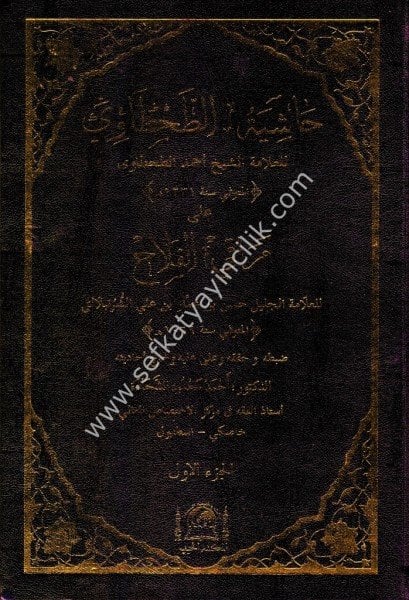 حاشية الطحطاوي
للعلامة الشيخ أحمد الطحطاوي
المتوفى سنة ١٢٣١
على
مراقي الفلاح
للعلامة الجليل حسن بن علي الشرنبلالي
المتوفى سنة
ضبطه وحققه وعلق عليه
الدكتور
أستاذ الفقه في مركز الاختصاص العالي
خاصكي - استانبول
الجزء الأول
www.sefkatyayincilik.com